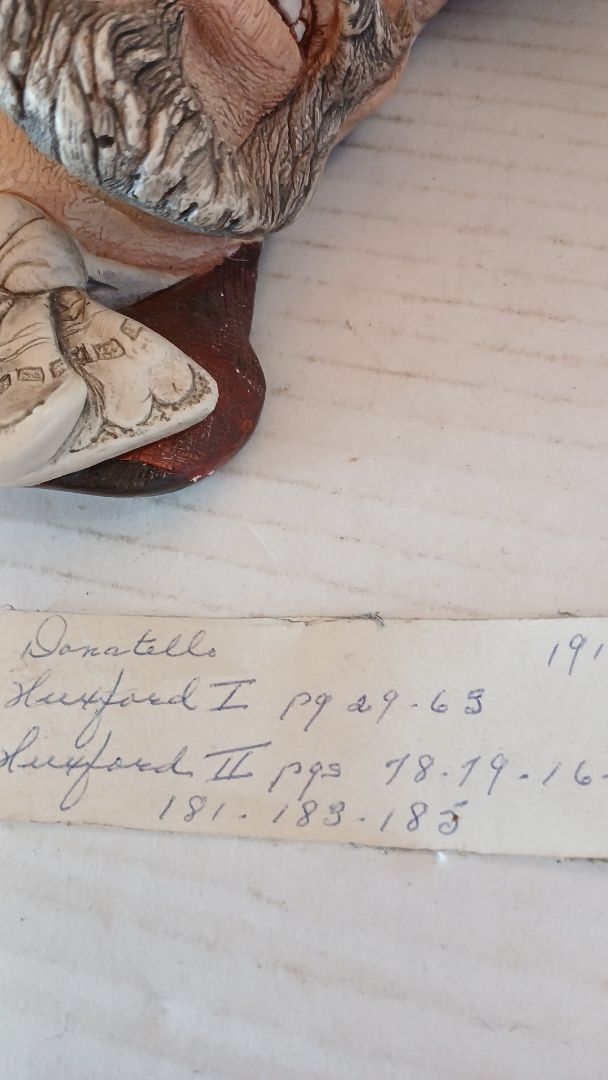 Donatello 191
Huxford I pg 29-63
Huxford II pgs 78-79-16-
181-183-185